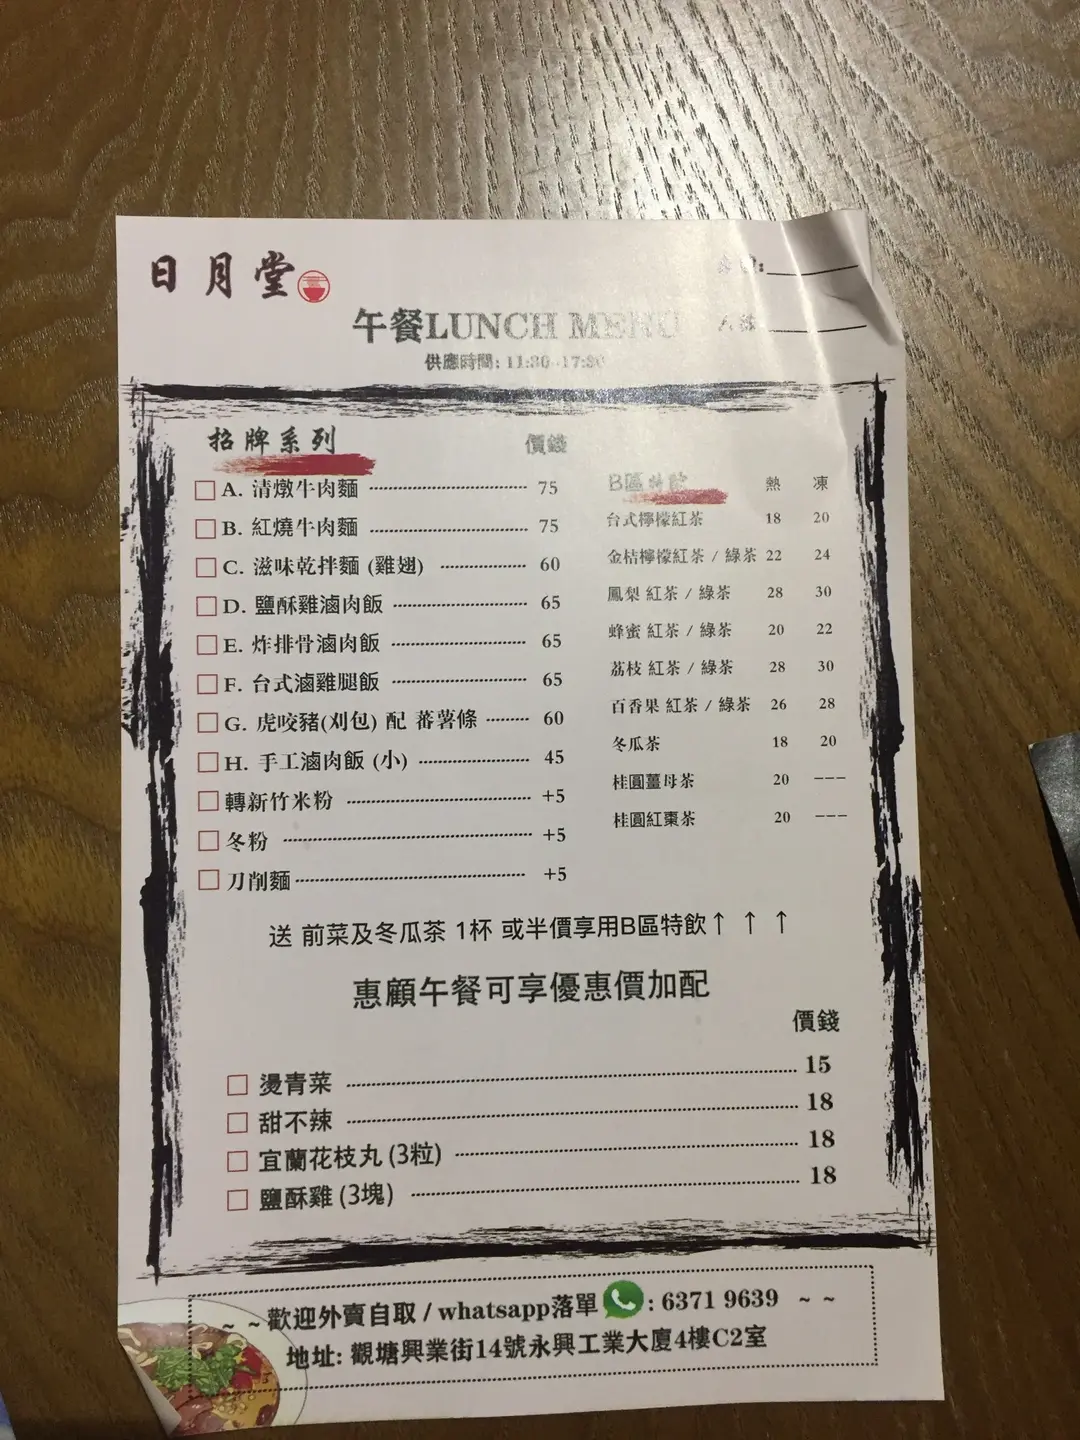 日月堂
午餐LUNCH MENU
供應時間: 11:30-17:30
招牌系列 價錢
A. 清燉牛肉麵 75
B. 紅燒牛肉麵 75
C. 滋味乾拌麵 (雞翅) 60
D. 鹽酥雞滷肉飯 65
E. 炸排骨滷肉飯 65
F. 台式滷雞腿飯 65
G. 虎咬豬(刈包) 配 蕃薯條 60
H. 手工滷肉飯 (小) 45
轉新竹米粉 +5
冬粉 +5
刀削麵 +5
B區特飲 熱 凍
台式檸檬紅茶 18 20
金桔檸檬紅茶 / 綠茶 22 24
鳳梨 紅茶 / 綠茶 28 30
蜂蜜 紅茶 / 綠茶 20 22
荔枝 紅茶 / 綠茶 28 30
百香果 紅茶 / 綠茶 26 28
冬瓜茶 18 20
桂圓薑母茶 20 ---
桂圓紅棗茶 20 ---
送 前菜及冬瓜茶 1杯 或半價享用B區特飲↑ ↑ ↑
惠顧午餐可享優惠價加配
價錢
燙青菜 15
甜不辣 18
宜蘭花枝丸 (3粒) 18
鹽酥雞 (3塊) 18
~ ~ 歡迎外賣自取 / whatsapp落單 : 6371 9639 ~ ~
地址: 觀塘興業街14號永興工業大廈4樓C2室